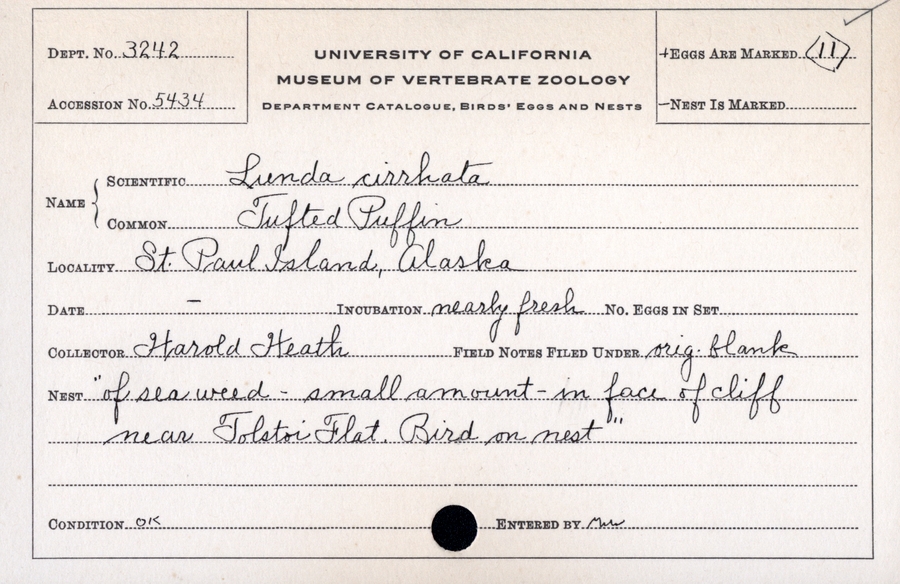 Dept. No. 3242
Accession No. 5434
University of California
Museum of Vertebrate Zoology
Department Catalogue, Birds' Eggs and Nests
+Eggs Are Marked 11
-Nest Is Marked
Name { Scientific Lunda cirrhata
Common Tufted Puffin
Locality St. Paul Island, Alaska
Date - Incubation nearly fresh No. Eggs in Set
Collector Harold Heath Field Notes Filed Under orig. blank
Nest "of sea weed - small amount - in face of cliff
near Tolstoi Flat. Bird on nest"
Condition OK Entered by